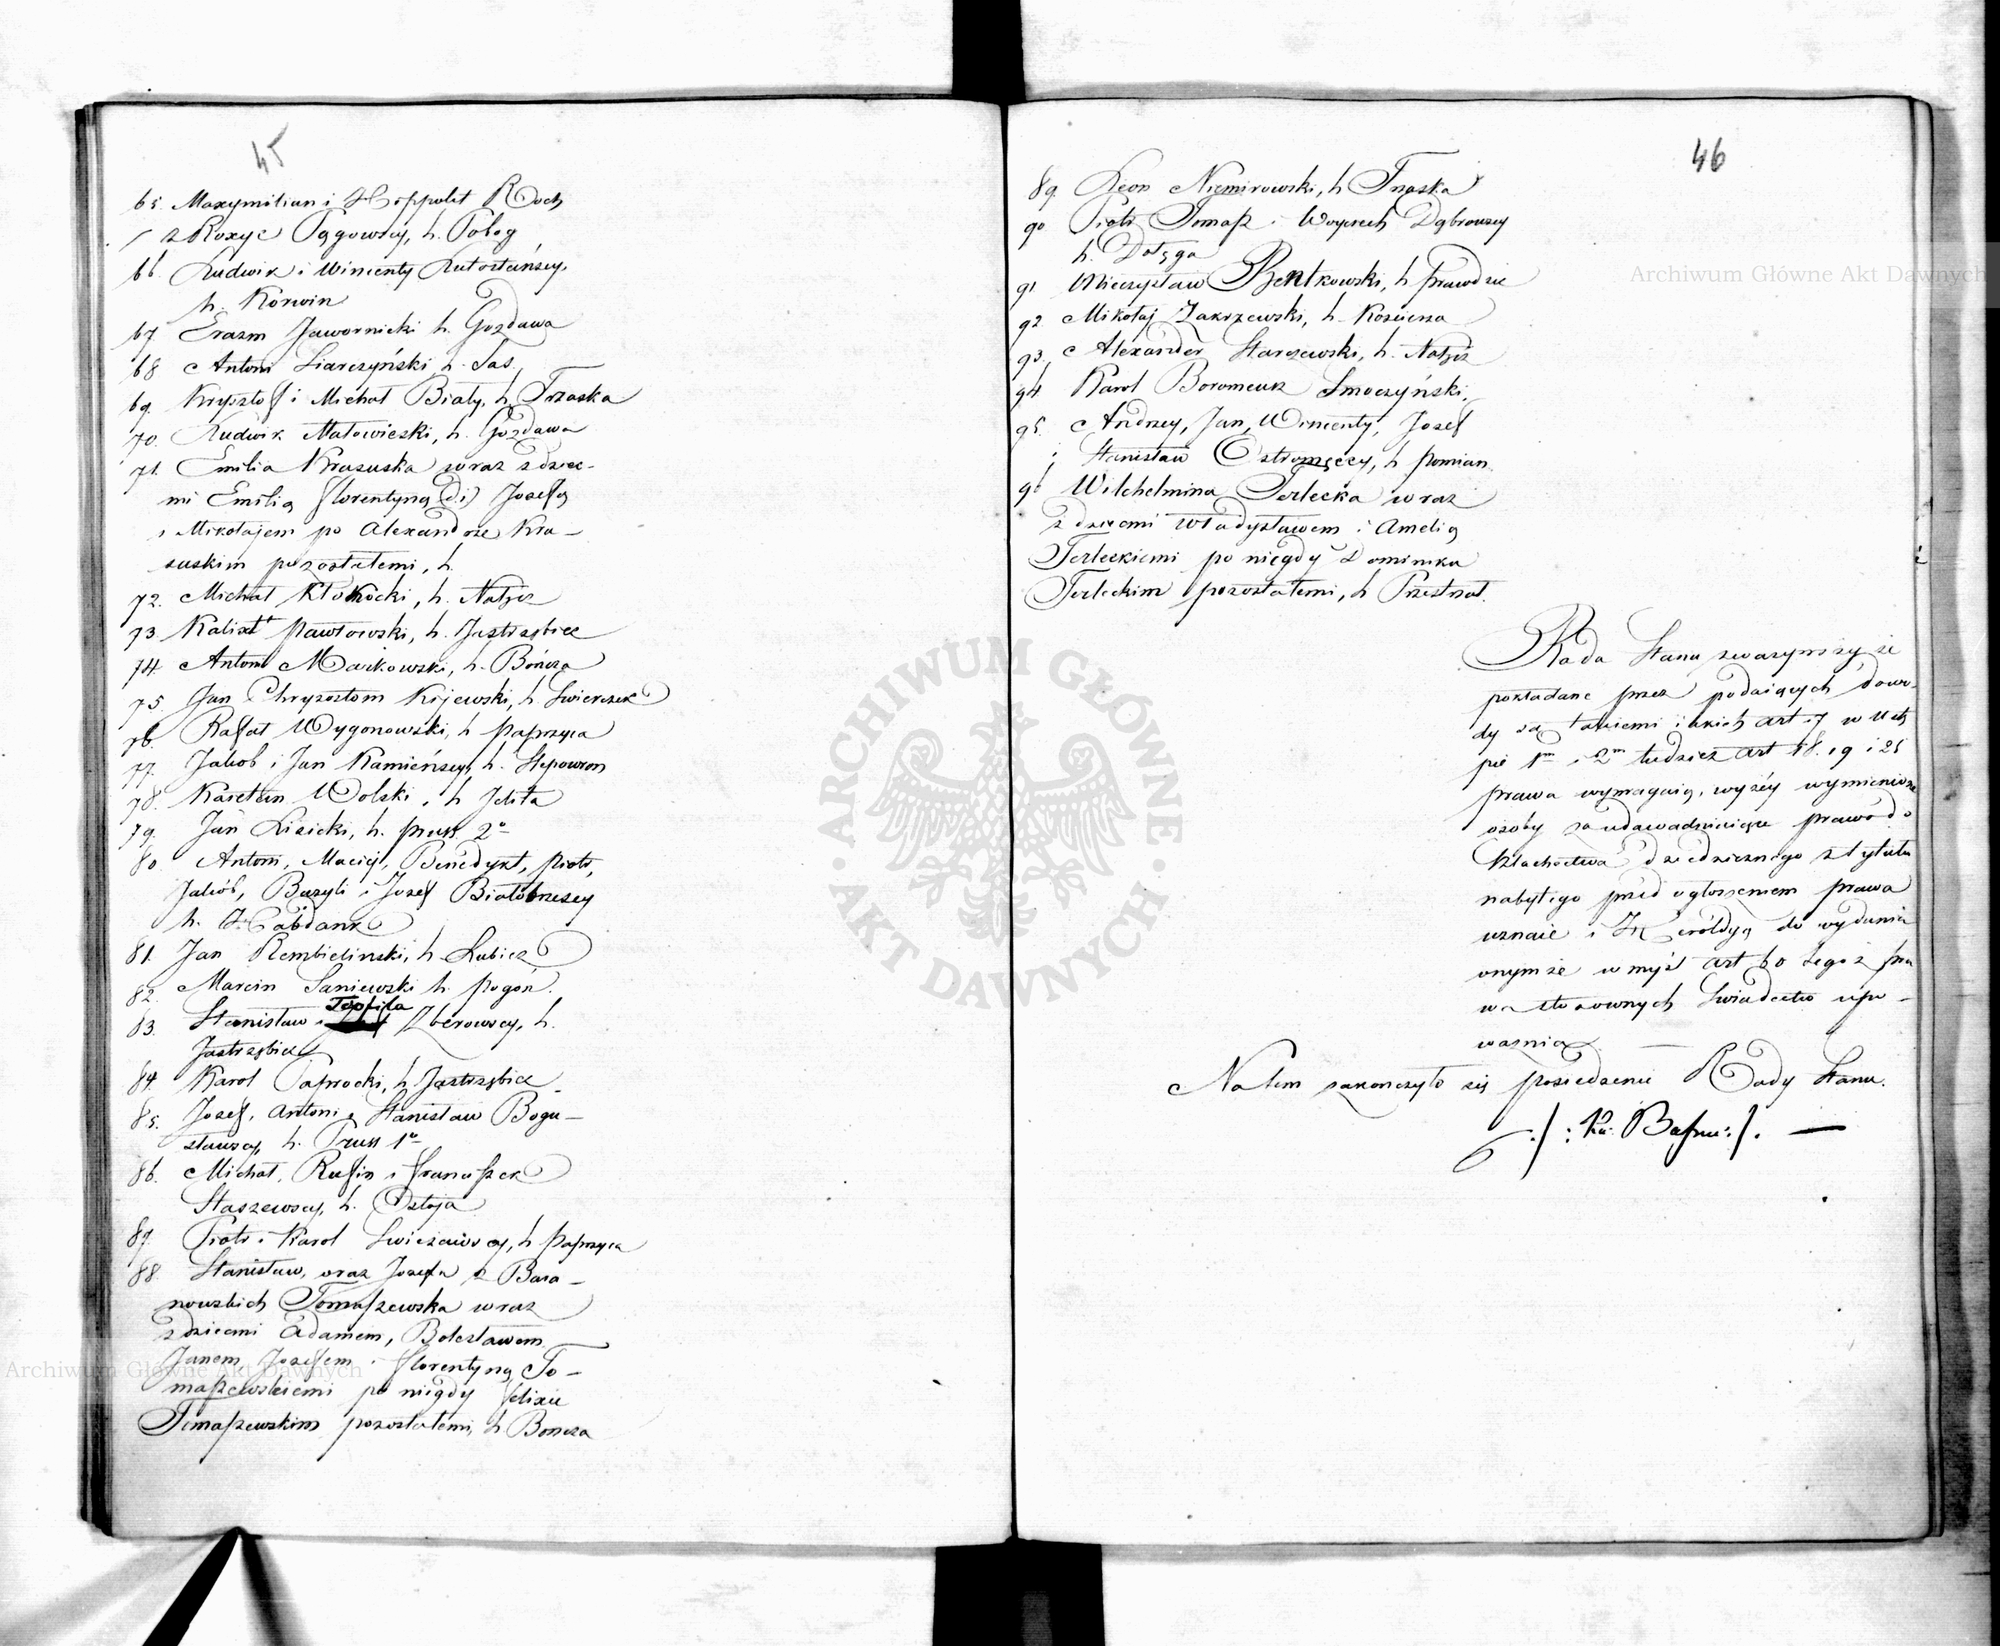 45
65. Maxymilian i Hippolit Roch
z Roxyc Pągowscy, h. Pobog
66. Ludwik i Wincenty Lutosłańscy,
h. Korwin
67. Erazm Jawornicki h. Gozdawa
68 Antoni Siarczyński h. Sas.
69. Krysztof i Michał Biały, h. Trzaska
70. Ludwik Małowieski, h. Gozdawa
71. Emilia Krasuska wraz z dziec-
mi Emilią Florentyną Józefą
i Mikołajem po Alexandrze Kra-
suskim pozostałemi, h.
72. Michał Kłokocki, h. Nałęcz
73. Kalixt Pawłowski, h. Jastrzębiec
74. Antoni Markowski, h. Bończa
75 Jan Chryzostom Kijewski, h. Swierczek
76. Rafał Wygonowski, h Paprzyca
77. Jakób i Jan Kamieńscy, h. Slepowron
78. Kajetan Wolski, h Jelita
79. Jan Lisicki, h. Pruss 2o
80. Antoni, Maciej, Benedykt, Piotr,
Jakób, Bazyli i Jozef Białobrzescy
h. Habdank
81. Jan Rembielinski, h. Lubicz
82. Marcin Saniewski h. Pogoń.
Teofila
83. Stanisław i Zberowscy, h.
Jastrzębiec
84. Karol Paprocki, h Jastrzębiec
85. Jozef, Antoni, Stanisław Bogu-
sławscy, h. Pruss 1o
86. Michał, Rufin i Franciszek
Staszewscy, h. Ostoja
87. Piotr i Karol Swieżawscy, h Paprzyca
88. Stanisław, oraz Jozefa z Bara-
nowskich Tomaszewska wraz
z dziecmi Adamem, Bolesławem
Janem Jozefem i Florentyną To-
maszewskiemi po niegdy Felixie
Tomaszewskim pozostałemi, h Boncza
46
89. Leon Niemirowski, h Trzaska
90 Piotr Tomasz i Woyciech Dąbrowscy
h. Dołęga
91 Mieczysław Bentkowski, h Prawdzic
92 Mikołaj Zakrzewski, h. Kosciesza
93. Alexander Starzewski, h. Nałęcz
94 Karol Boromeusz Smoczyński,
95. Andrzey, Jan, Wincenty, Jozef
i Stanisław Ostromęccy, h Pomian
96 Wilchelmina Terlecka wraz
z dziecmi Władysławem i Amelią
Terleckiemi po niegdy Dominiku
Terleckim pozostałemi, h Przestrzał.
Rada Stanu zwazywszy że
pokładane przez podaiących dowo-
dy są takiemi iakich Art 7 w Ustę
pie 1m i 2m tudzież Art 18. 19 i 25
prawa wymagaią, wyżéy wymienione
osoby za udawadniaiące prawo do
Szlachectwa dziedzicznego z tytułu
nabytego przed ogłoszeniem prawa
uznaie i Heroldyą do wydania
onymże w myśl Art 60 tegoż pra
wa stosownych Swiadectw upo-
ważnia.
Na tem zakończyło się posiedzenie Rady Stanu.